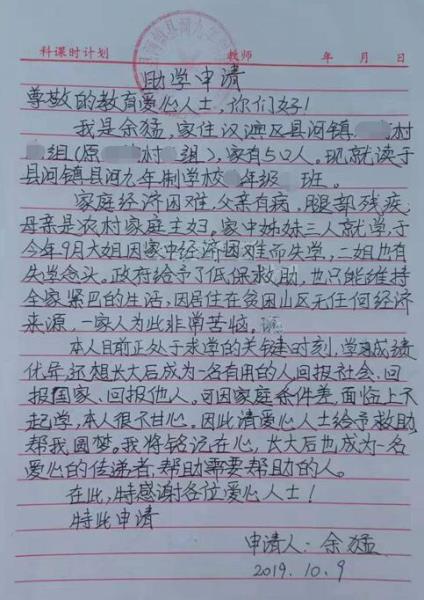 科课时计划 教师 年 月 日
助学申请
尊敬的教育爱心人士，你们好！
我是余猛，家住汉滨区县河镇 村
组（原 村 组），家有5口人。现就读于
县河镇县河九年制学校 年级 班。
家庭经济困难，父亲有病，腿部残疾，
母亲是农村家庭主妇。家中姊妹三人就学，于
今年9月大姐因家中经济困难而失学，二姐也有
失学念头。政府给予了低保救助，也只能维持
全家紧巴的生活，因居住在贫困山区无任何经济
来源，一家人为此非常苦恼。
本人目前正处于求学的关键时刻，学习成绩
优异，还想长大后成为一名有用的人回报社会、回
报国家、回报他人。可因家庭条件差，面临上不
起学，本人很不甘心。因此请爱心人士给予救助，
帮我圆梦。我将铭记在心，长大后也成为一名
爱心的传递者，帮助需要帮助的人。
在此，特感谢各位爱心人士！
特此申请
申请人：余猛
2019.10.9